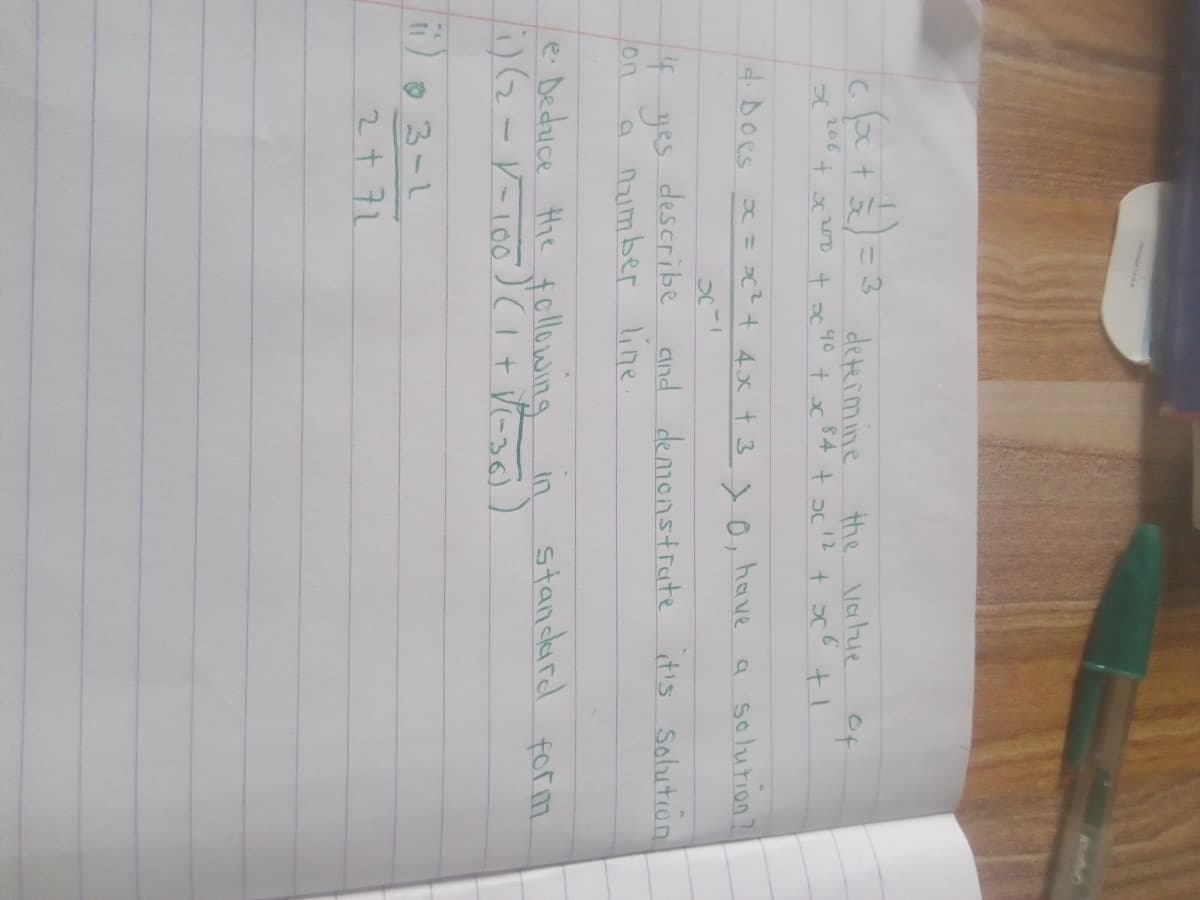 c. (x + 1/x) = 3 determine the value of
x^206 + x^200 + x^90 + x^84 + x^12 + x^6 + 1
d. Does x = x² + 4x + 3 > 0, have a solution?
x^-1
If yes describe and demonstrate it's solution
on a number line.
e. Deduce the following in standard form
i) (2 - √-100)(1 + √(-36))
ii) 3-i
2+7i